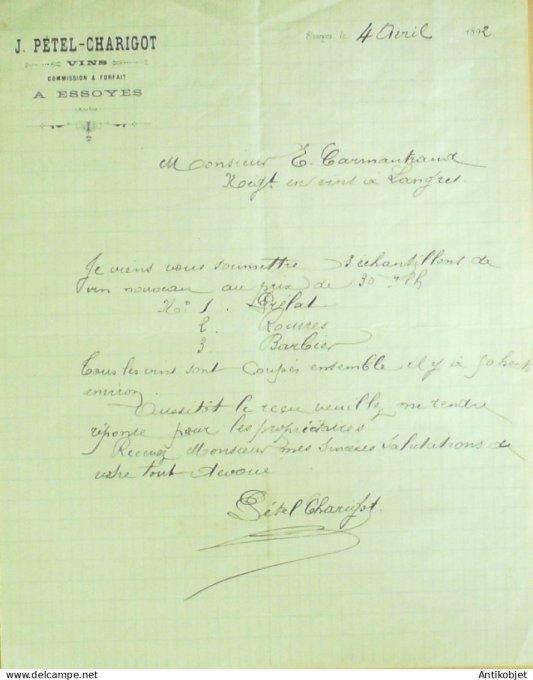 J. PÉTEL-CHARIGOT
VINS
COMMISSION & FORFAIT
A ESSOYES
(Aube)
Essoyes, le 4 Avril 1892
Monsieur E. Carmantrand
Negt en vins à Langres.
Je viens vous soumettre 3 échantillons de
vin nouveau au prix de 30
No 1. Prélat
2. Rouvres
3 Barbier
Tous les vins sont coupés ensemble il y a 50
environ.
Aussitôt le reçu veuillez me rendre
réponse pour les propriétaires
Recevez Monsieur mes sincères salutations de
votre tout dévoué
Pétel Charigot.
Antikobjet - www.delcampe.net